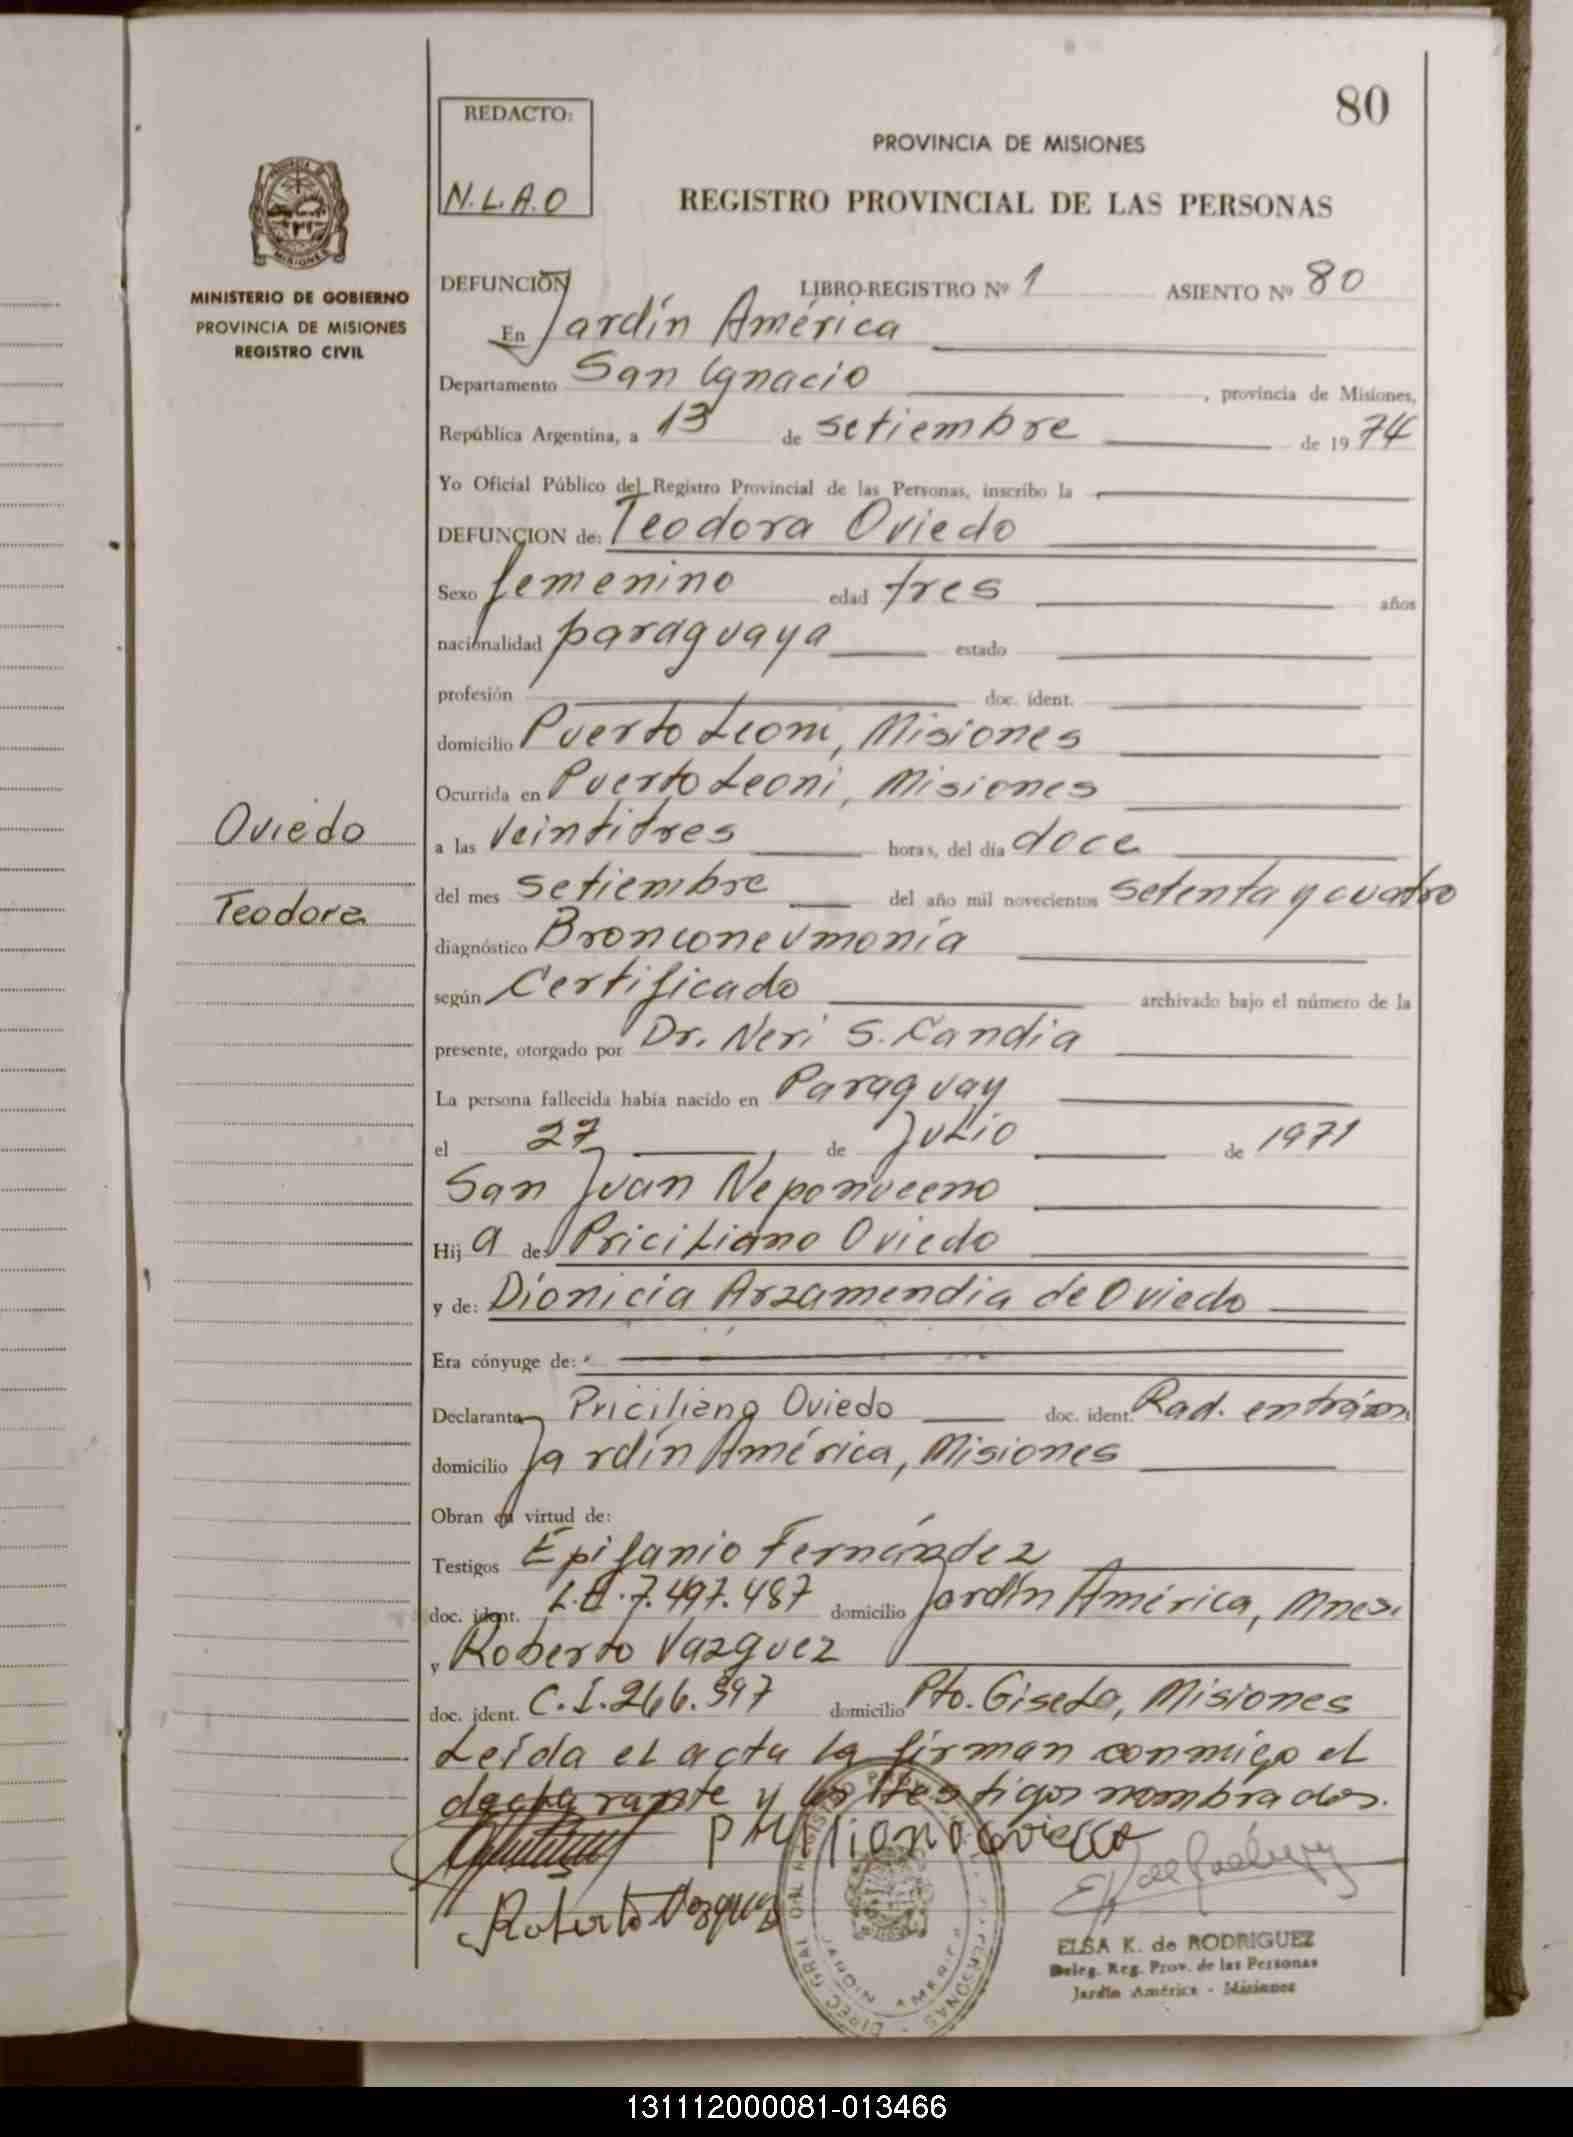 80
REDACTO:
N.L.A.O
PROVINCIA DE MISIONES
REGISTRO PROVINCIAL DE LAS PERSONAS
MISIONES
MINISTERIO DE GOBIERNO
PROVINCIA DE MISIONES
REGISTRO CIVIL
DEFUNCIÓN LIBRO-REGISTRO Nº 1 ASIENTO Nº 80
En Jardín América
Departamento San Ignacio , provincia de Misiones,
República Argentina, a 13 de setiembre de 1974
Yo Oficial Público del Registro Provincial de las Personas, inscribo la
DEFUNCION de: Teodora Oviedo
Sexo femenino edad tres años
nacionalidad paraguaya estado
profesión doc. ident.
domicilio Puerto Leoni, Misiones
Ocurrida en Puerto Leoni, Misiones
Oviedo
a las veintitres horas, del día doce
del mes setiembre del año mil novecientos setenta y cuatro
Teodora
diagnóstico Bronconeumonía
según Certificado archivado bajo el número de la
presente, otorgado por Dr. Neri S. Candia
La persona fallecida había nacido en Paraguay
el 27 de Julio de 1971
San Juan Neponuceno
Hij a de Priciliano Oviedo
y de: Dionicia Arzamendia de Oviedo
Era cónyuge de:
Declarante Priciliano Oviedo doc. ident. Rad. en trám
domicilio Jardín América, Misiones
Obran en virtud de:
Testigos Epifanio Fernández
doc. ident. L.E. 7.497.487 domicilio Jardín América, Mnes.
y Roberto Vazquez
doc. ident. C.I. 266.397 domicilio Pto. Gisela, Misiones
Leída el acta la firman conmigo el
declarante y los testigos nombrados.
Roberto Vazquez
ELSA K. de RODRIGUEZ
Deleg. Reg. Prov. de las Personas
Jardín América - Misiones
131112000081-013466